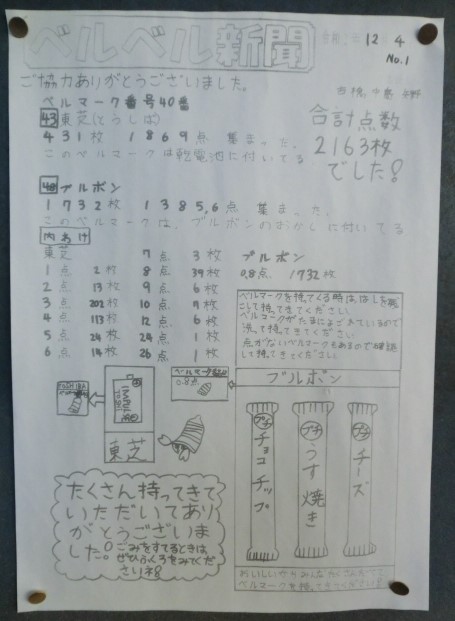 ベルベル新聞
12 4
No.1
ご協力ありがとうございました。
ベルマーク番号40番
43 東芝(とうしば)
431枚 1869点 集まった。
このベルマークは乾電池に付いてる
合計点数
2163枚
でした!
48 ブルボン
1732枚 1385,6点 集まった。
このベルマークは、ブルボンのおかしに付いてる
内わけ
東芝
1点 2枚
2点 13枚
3点 202枚
4点 113枚
5点 24枚
6点 14枚
7点 3枚
8点 39枚
9点 6枚
10点 7枚
12点 6枚
24点 1枚
26点 1枚
ブルボン
0.8点 1732枚
ベルマークを持ってくる時は、
持ってきてください。
ベルマークが
洗って持ってきてください。
点がないベルマークもあるので確認
して持ってきてください。
TOSHIBA
東芝
ベルマーク
0.8点
ブルボン
プチ チョコチップ
プチ うす焼き
プチ チーズ
たくさん持ってきて
いただいてあり
がとうございま
した。ごみをすてるときは
ぜひふくろをみてくだ
さいネ!
ベルマークを持ってきてください